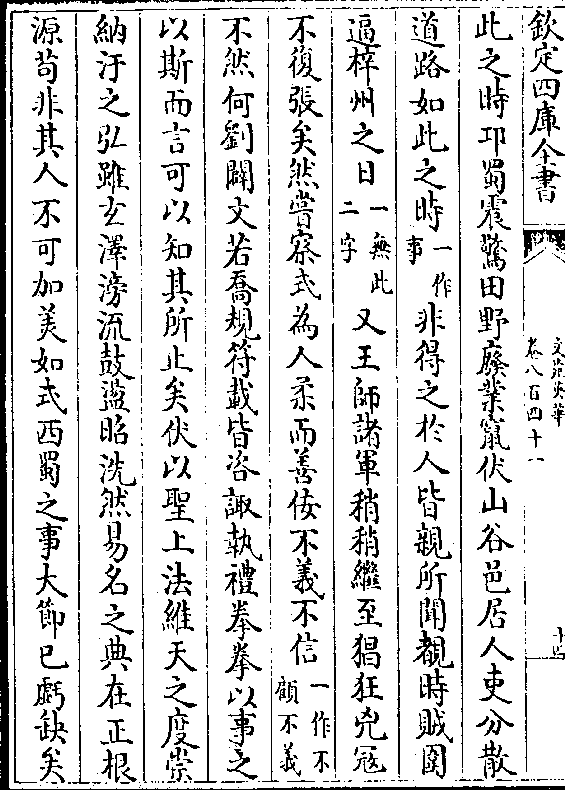 欽定四庫全書
文苑英華
卷八百四十一
十四
此之時卭蜀震驚田野廢業竄伏山谷邑居人吏分散
道路如此之時一作事非得之於人皆親所聞覩時賊圍
逼梓州之日一無此二字又王師諸軍稍稍繼至猖狂兇冦
不復張矣然嘗察式為人柔而善佞不義不信一作不顧不義
不然何劉闢文若喬規符載皆咨諏執禮拳拳以事之
以斯而言可以知其所止矣伏以聖上法維天之度崇
納汙之弘雖玄澤滂流鼓盪昭洗然易名之典在正根
源苟非其人不可加美如式西蜀之事大節已虧缺矣